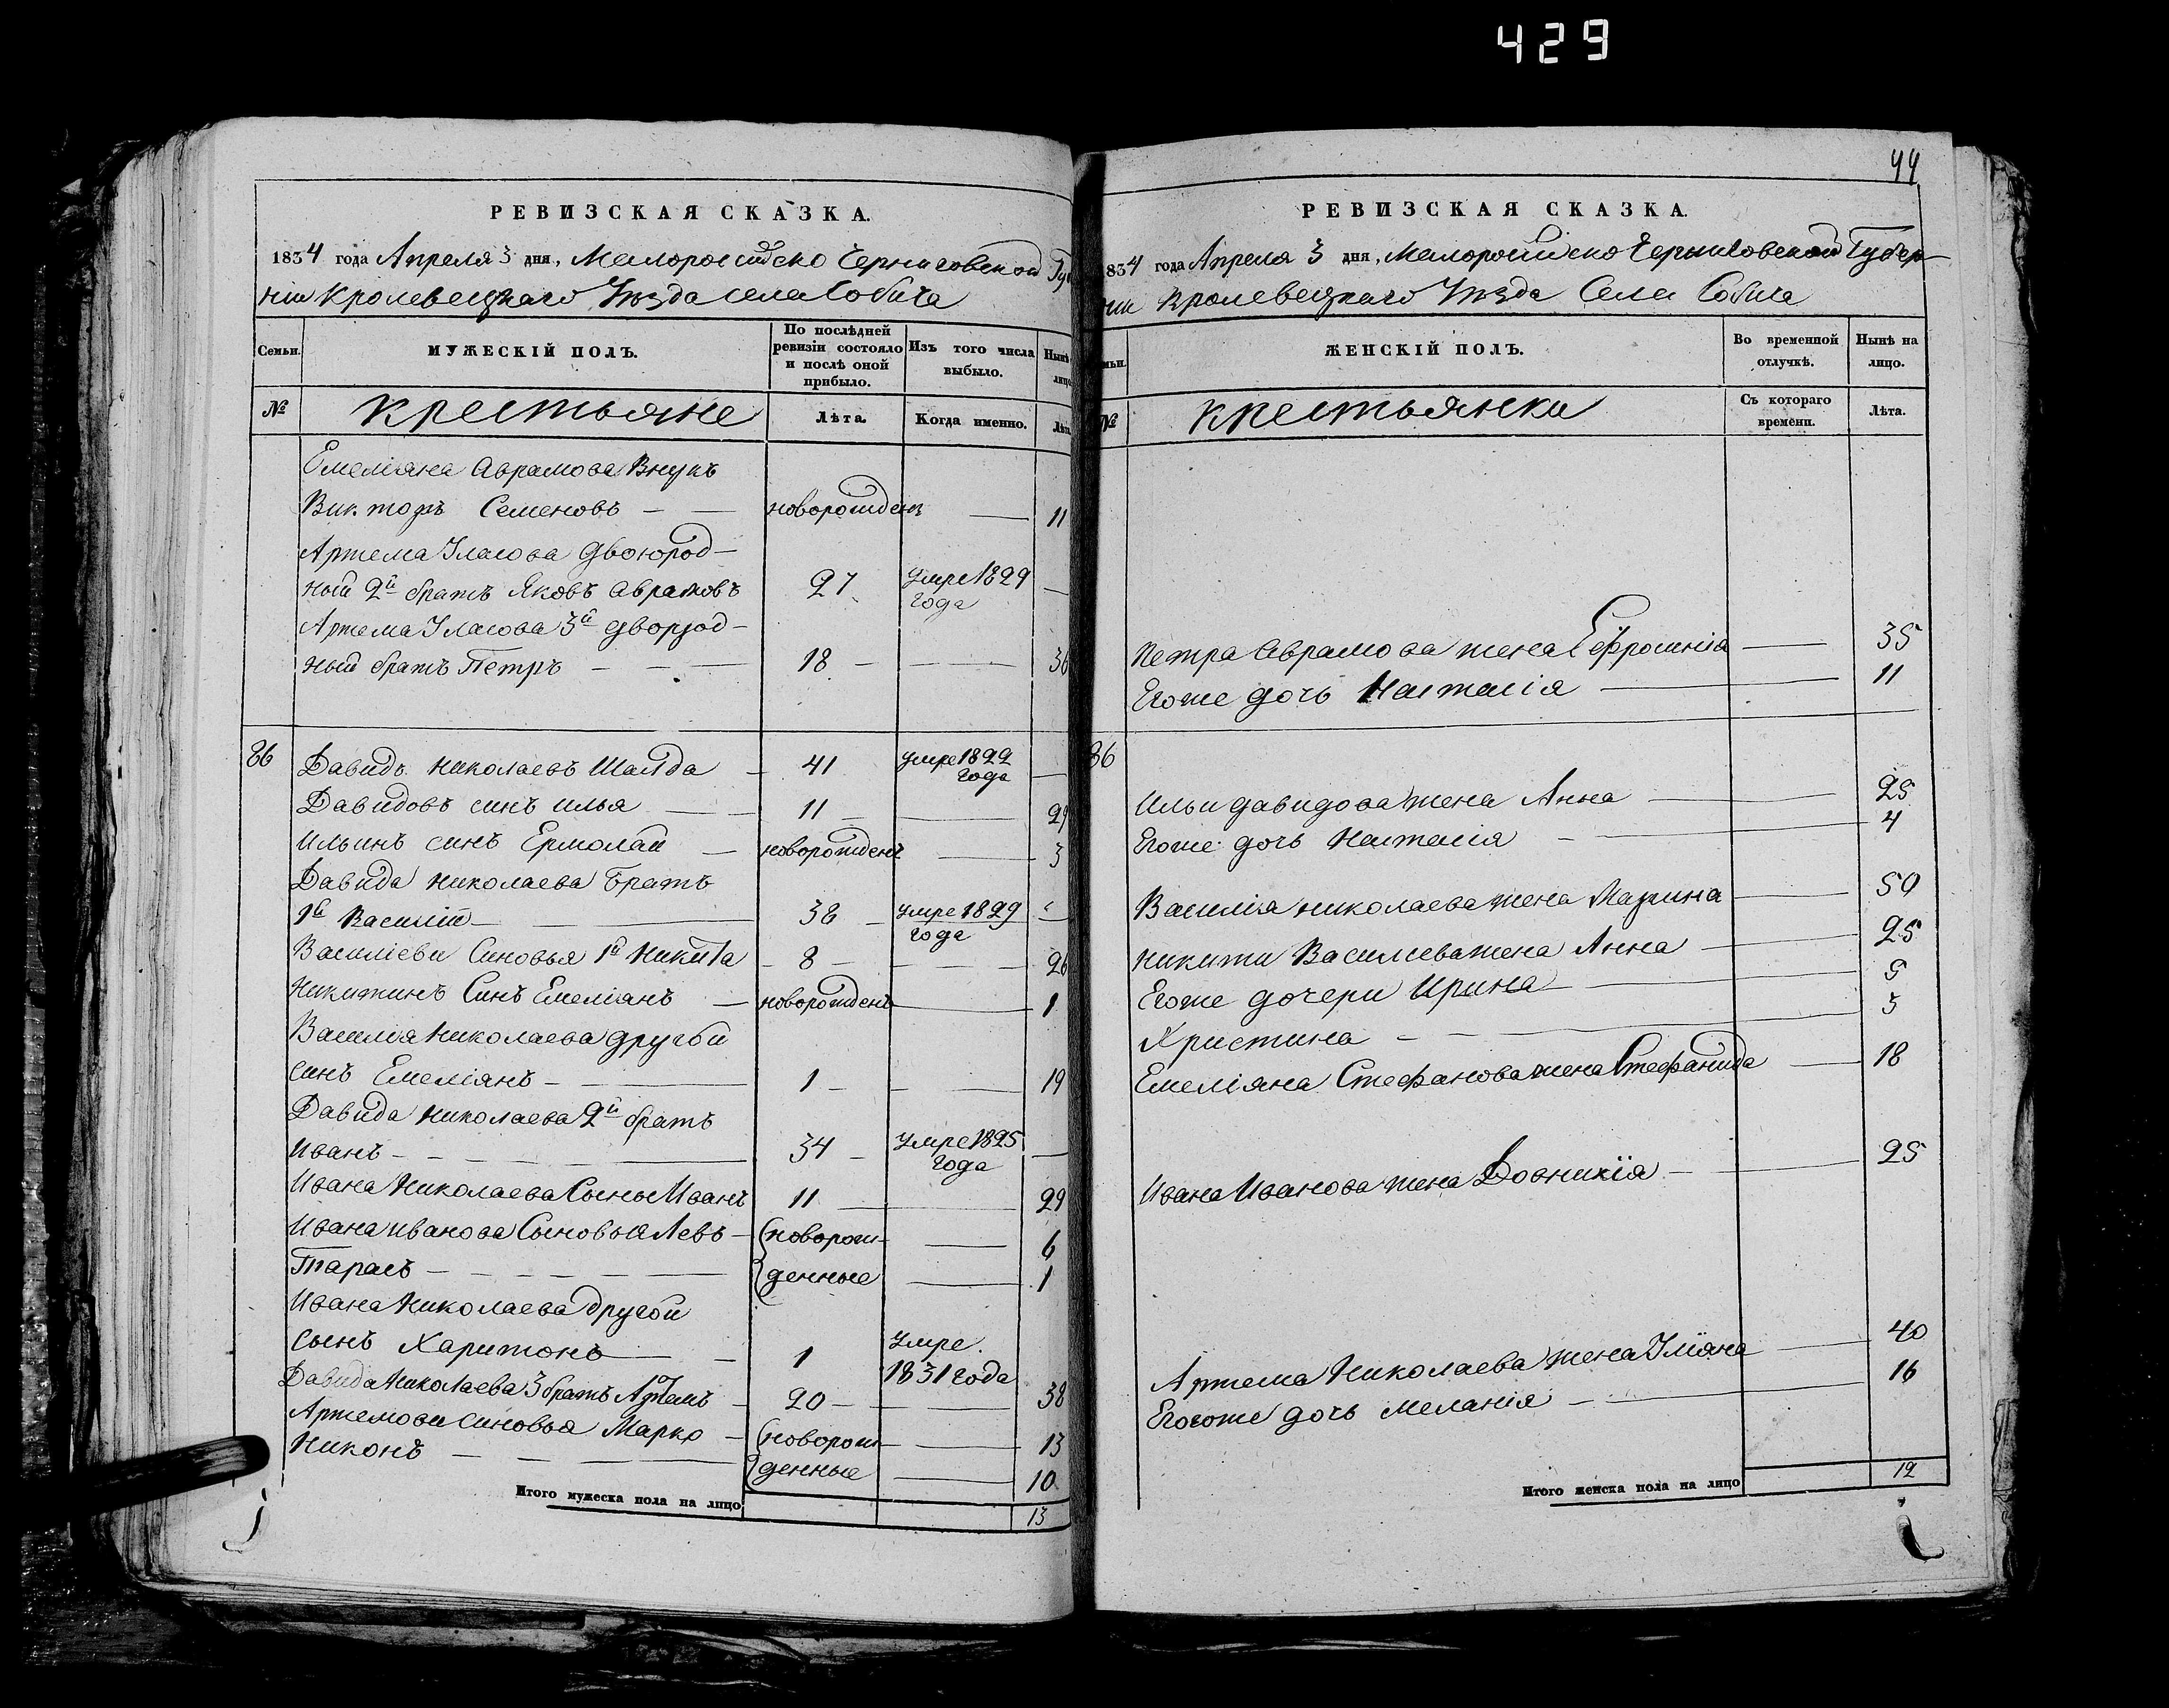 429
РЕВИЗСКАЯ СКАЗКА.
1834 года Апреля 3 дня, Малоросийско Черниговской Гу
нии Кролевецкаго Уѣзда села Собича
Семьи.
МУЖЕСКІЙ ПОЛЪ.
По послѣдней ревизіи состояло и послѣ оной прибыло.
Изъ того числа выбыло.
Нынѣ лицо
№
Крестьяне
Лѣта.
Когда именно.
Лѣта
Емеліяна Аврамова Внукъ
Викторъ Семеновъ — — новорожденъ — 11
Артема Власова двоюрод-
ный 2й братъ Яковъ Аврамовъ 27 умре 1829 года —
Артема Власова 3й двоюрод-
ный братъ Петръ — — — 18 — — — 36
86 Давидъ Николаевъ Шалда — 41 умре 1822 года —
Давидовъ синъ илья — 11 — — 29
Ильинъ синъ Ермолай — новорожденъ — 3
Давида Николаева Братъ
1й Василій — — 38 — умре 1829 года —
Василіеви Синовья 1й Никита — 8 — — — 26
Никитинъ Синъ Емеліянъ — новорожденъ — 1
Василія Николаева другой
синъ Емеліянъ — — 1 — — 19
Давида Николаева 2й братъ
Иванъ — — — — 34 — умре 1825 года —
Ивана Николаева Сыны Иванъ 11 — 29
Ивана иванова Сыновья Левъ — новорож- — 6
Тарасъ — — — — — денные — 1
Ивана Николаева другой
сынъ Харитонъ — — 1 умре 1831 года
Давида Николаева 3 братъ Артемъ — 20 — — 38
Артемови синовья Марко — новорож- — 13
Никонъ — — — денные — 10
Итого мужеска пола на лицо 13
44
РЕВИЗСКАЯ СКАЗКА.
834 года Апреля 3 дня, Малоросийско Черниговской Губер-
нии Кролевецкаго Уѣзда Села Собича
мьи.
ЖЕНСКІЙ ПОЛЪ.
Во временной отлучкѣ.
Нынѣ на лицо.
№
Крестьянки
Съ котораго времени.
Лѣта.
Петра Аврамова жена Ефросинія — 35
Егоже дочь Наталія — 11
86
Ильи давидова жена Анна — 25
Егоже дочь Наталія — 4
Василія николаева жена Марина — 50
Никити Василиева жена Анна — 25
Егоже дочери Ирина — 5
Христина — — 3
Емеліяна Стефанова жена Стефанида — 18
Ивана Иванова жена Довникія — 25
Артема Николаева жена Уліяна — 40
Егоже дочь Меланія — 16
Итого женска пола на лицо 12